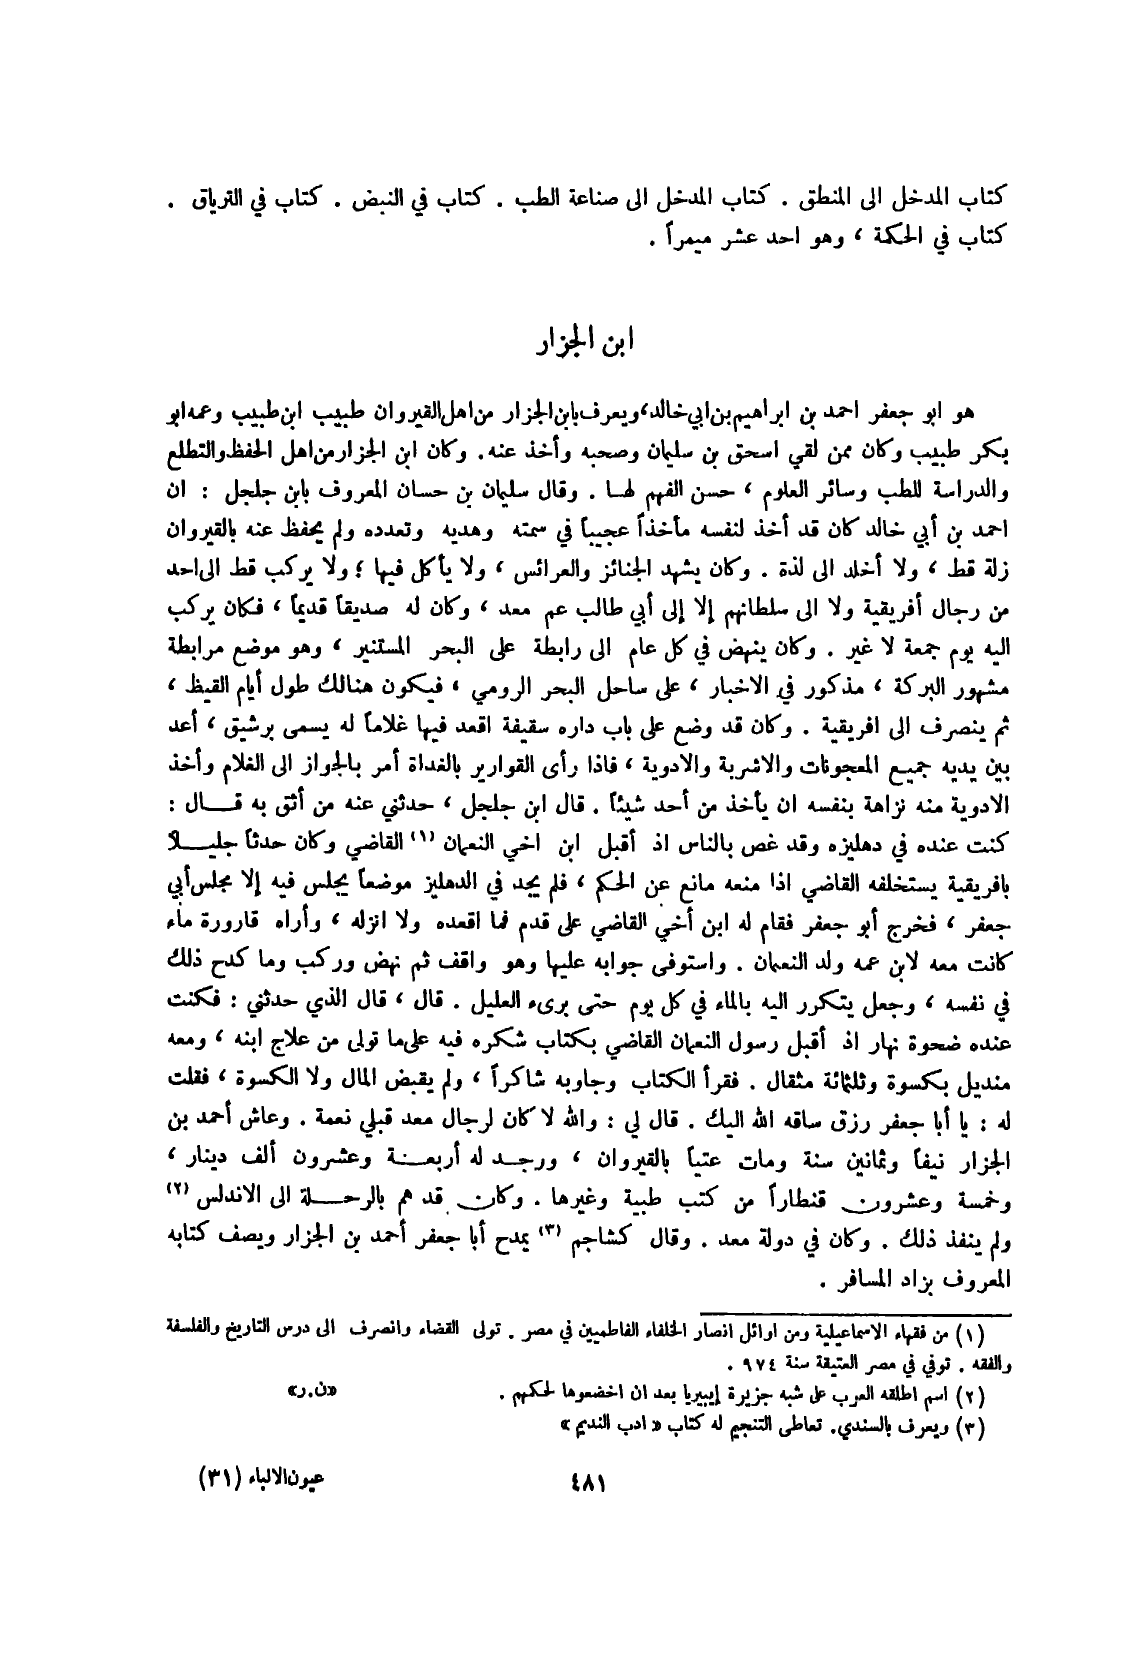 كتاب المدخل الى المنطق . كتاب المدخل الى صناعة الطب . كتاب في النبض . كتاب في الترياق .
كتاب في الحكمة ، وهو احد عشر ميمراً .
ابن الجزار
هو ابو جعفر احمد بن ابراهيم بن ابي خالد، ويعرف بابن الجزار من اهل القيروان طبيب ابن طبيب وعمه ابو
بكر طبيب وكان ممن لقي اسحق بن سليمان وصحبه وأخذ عنه. وكان ابن الجزار من اهل الحفظ والتطلع
والدراسة للطب وسائر العلوم ، حسن الفهم لها . وقال سليمان بن حسان المعروف بابن جلجل : ان
احمد بن أبي خالد كان قد أخذ لنفسه مأخذاً عجيباً في سمته وهديه وتعدده ولم يحفظ عنه بالقيروان
زلة قط ، ولا أخلد الى لذة . وكان يشهد الجنائز والعرائس ، ولا يأكل فيها ؛ ولا يركب قط الى احد
من رجال أفريقية ولا الى سلطانهم إلا إلى أبي طالب عم معد ، وكان له صديقاً قديماً ، فكان يركب
اليه يوم جمعة لا غير . وكان ينهض في كل عام الى رابطة على البحر المستنير ، وهو موضع مرابطة
مشهور البركة ، مذكور في الاخبار ، على ساحل البحر الرومي ، فيكون هنالك طول أيام القيظ ،
ثم ينصرف الى افريقية . وكان قد وضع على باب داره سقيفة اقعد فيها غلاماً له يسمى برشيق ، أعد
بين يديه جميع المعجونات والاشربة والادوية ، فاذا رأى القوارير بالغداة أمر بالجواز الى الغلام وأخذ
الادوية منه نزاهة بنفسه ان يأخذ من أحد شيئاً . قال ابن جلجل ، حدثني عنه من أثق به قال :
كنت عنده في دهليزه وقد غص بالناس اذ أقبل ابن اخي النعمان (١) القاضي وكان حدثاً جليلاً
بافريقية يستخلفه القاضي اذا منعه مانع عن الحكم ، فلم يجد في الدهليز موضعاً يجلس فيه إلا مجلس أبي
جعفر ، فخرج أبو جعفر فقام له ابن أخي القاضي على قدم فما اقعده ولا انزله ، وأراه قارورة ماء
كانت معه لابن عمه ولد النعمان . واستوفى جوابه عليها وهو واقف ثم نهض وركب وما كدح ذلك
في نفسه ، وجعل يتكرر اليه بالماء في كل يوم حتى برىء العليل . قال ، قال الذي حدثني : فكنت
عنده ضحوة نهار اذ أقبل رسول النعمان القاضي بكتاب شكره فيه على ما تولى من علاج ابنه ، ومعه
منديل بكسوة وثلثمائة مثقال . فقرأ الكتاب وجاوبه شاكراً ، ولم يقبض المال ولا الكسوة ، فقلت
له : يا أبا جعفر رزق ساقه الله اليك . قال لي : والله لا كان لرجال معد قبلي نعمة . وعاش أحمد بن
الجزار نيفاً وثمانين سنة ومات عتياً بالقيروان ، ورجد له أربعة وعشرون ألف دينار ،
وخمسة وعشرون قنطاراً من كتب طبية وغيرها . وكان قد هم بالرحلة الى الاندلس (٢)
ولم ينفذ ذلك . وكان في دولة معد . وقال كشاجم (٣) يمدح أبا جعفر أحمد بن الجزار ويصف كتابه
المعروف بزاد المسافر .
(١) من فقهاء الاسماعيلية ومن اوائل انصار الخلفاء الفاطميين في مصر . تولى القضاء وانصرف الى درس التاريخ والفلسفة
والفقه . توفي في مصر العتيقة سنة ٩٧٤ .
(٢) اسم اطلقه العرب على شبه جزيرة إيبيريا بعد ان اخضعوها لحكمهم . «ن.ر»
(٣) ويعرف بالسندي. تعاطى التنجيم له كتاب « ادب النديم »
٤٨١
عيون الالباء (٣١)